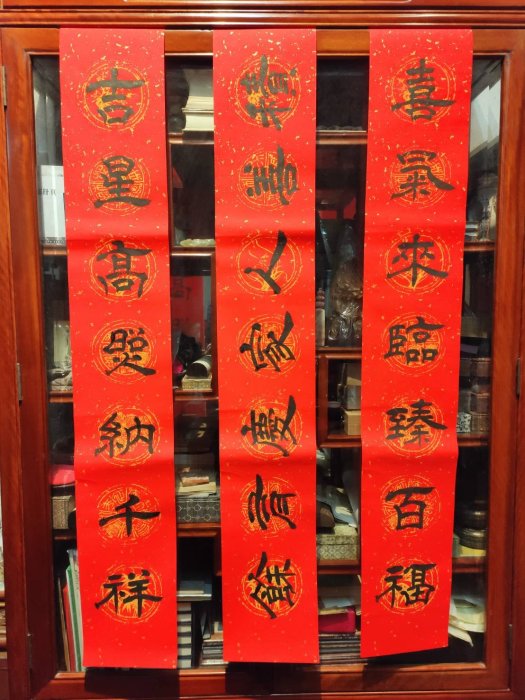 喜氣來臨臻百福
積善人家慶有餘
吉星高照納千祥